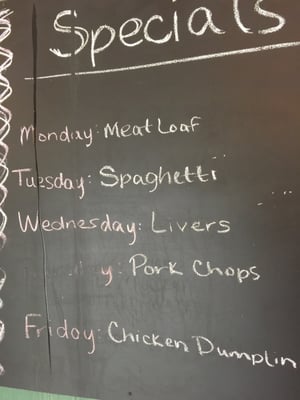 Specials
Monday: Meat Loaf
Tuesday: Spaghetti
Wednesday: Livers
Pork Chops
Friday: Chicken Dumplin